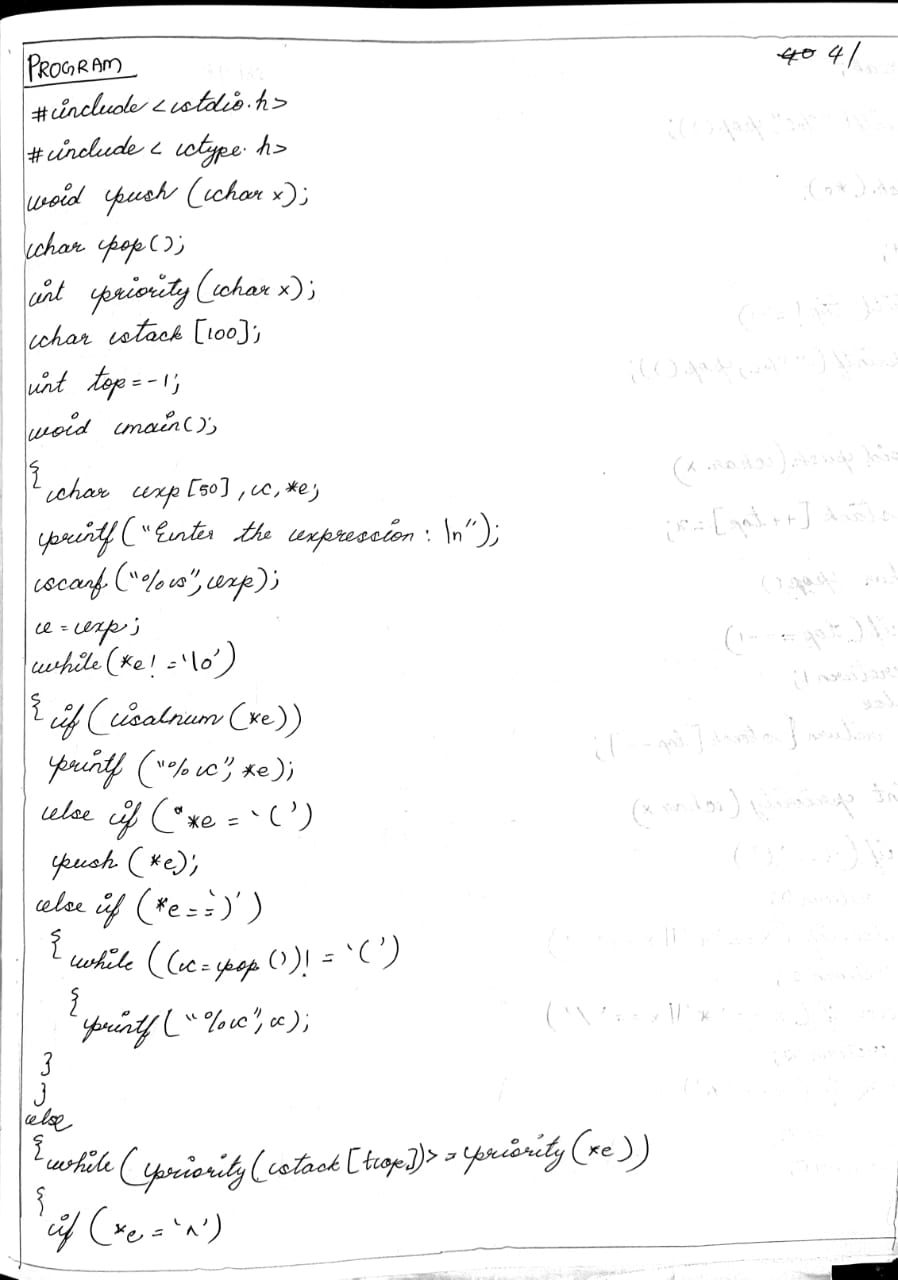 PROGRAM
40 4/
#include <stdio.h>
#include < ctype.h>
void push (char x);
char pop();
int priority (char x);
char stack [100];
int top = -1;
void main();
{ char exp [50], c, *e;
printf ("Enter the expression : \n");
scanf ("%s", exp);
e = exp;
while (*e! = '\0')
{ if (isalnum (*e))
printf ("%c", *e);
else if (*e = '(')
push (*e);
else if (*e == ')')
{ while ((c = pop ())! = '(')
{
printf ("%c", c);
}
}
else
{ while (priority (stack [top]) > = priority (*e))
{
if (*e = '^')